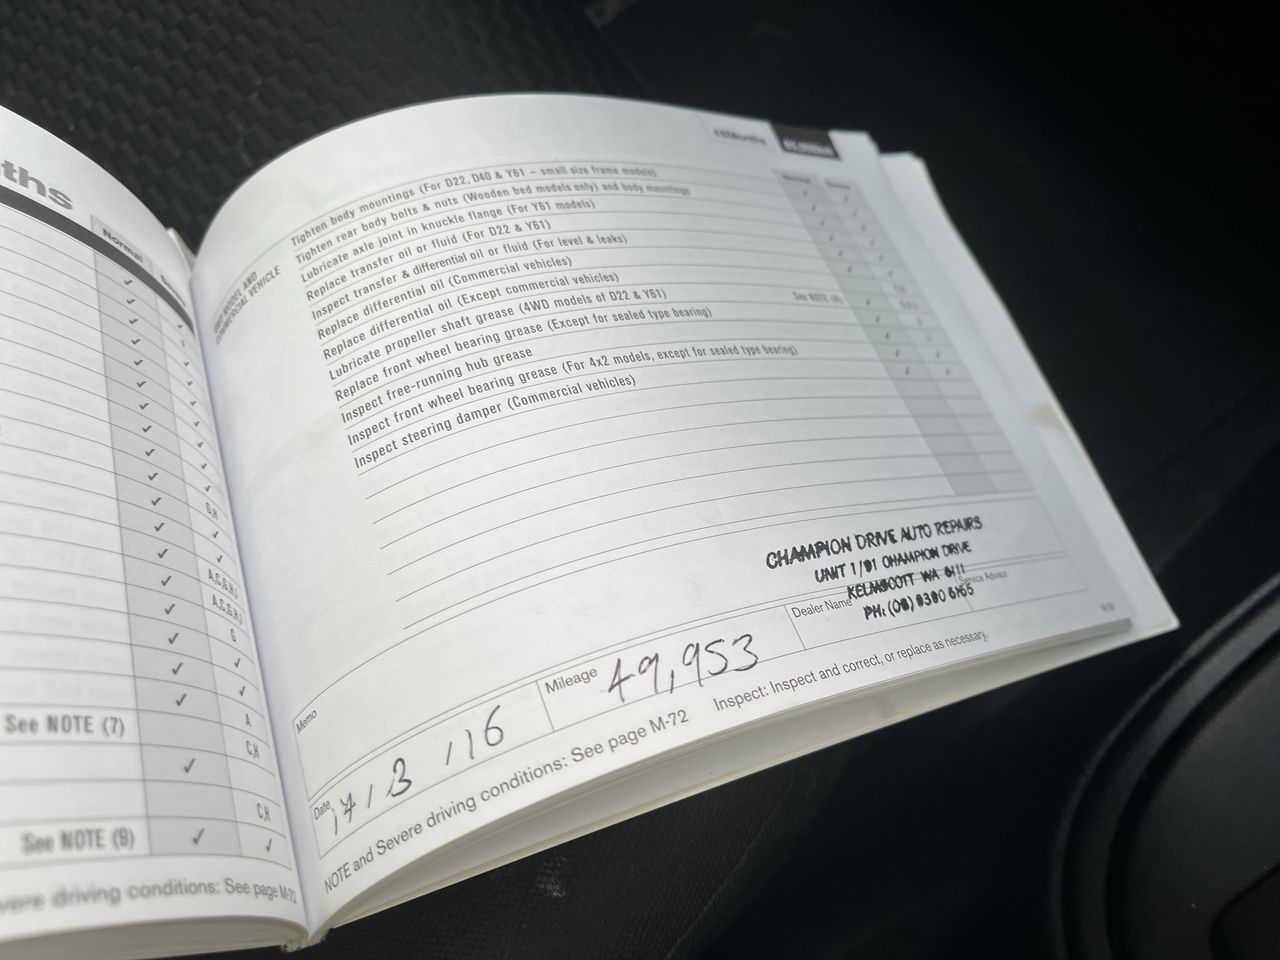 ths
Normal
G,H
A,C,G,H,J
A,C,G,H,J
G
A
See NOTE (7)
C,H
C,H
See NOTE (9)
vere driving conditions: See page M-72
48Months
4WD MODEL AND
COMMERCIAL VEHICLE
Tighten body mountings (For D22, D40 & Y61 – small size frame models)
Tighten rear body bolts & nuts (Wooden bed models only) and body mountings
Lubricate axle joint in knuckle flange (For Y61 models)
Replace transfer oil or fluid (For D22 & Y61)
Inspect transfer & differential oil or fluid (For level & leaks)
Replace differential oil (Commercial vehicles)
Replace differential oil (Except commercial vehicles)
Lubricate propeller shaft grease (4WD models of D22 & Y61)
Replace front wheel bearing grease (Except for sealed type bearing) See NOTE
Inspect free-running hub grease
Inspect front wheel bearing grease (For 4x2 models, except for sealed type bearing)
Inspect steering damper (Commercial vehicles)
Memo
CHAMPION DRIVE AUTO REPAIRS
UNIT 1/91 CHAMPION DRIVE
KELMSCOTT WA 6111
PH: (08) 9390 6165
Date 17/3/16 Mileage 49,953 Dealer Name Service Advisor
NOTE and Severe driving conditions: See page M-72 Inspect: Inspect and correct, or replace as necessary.